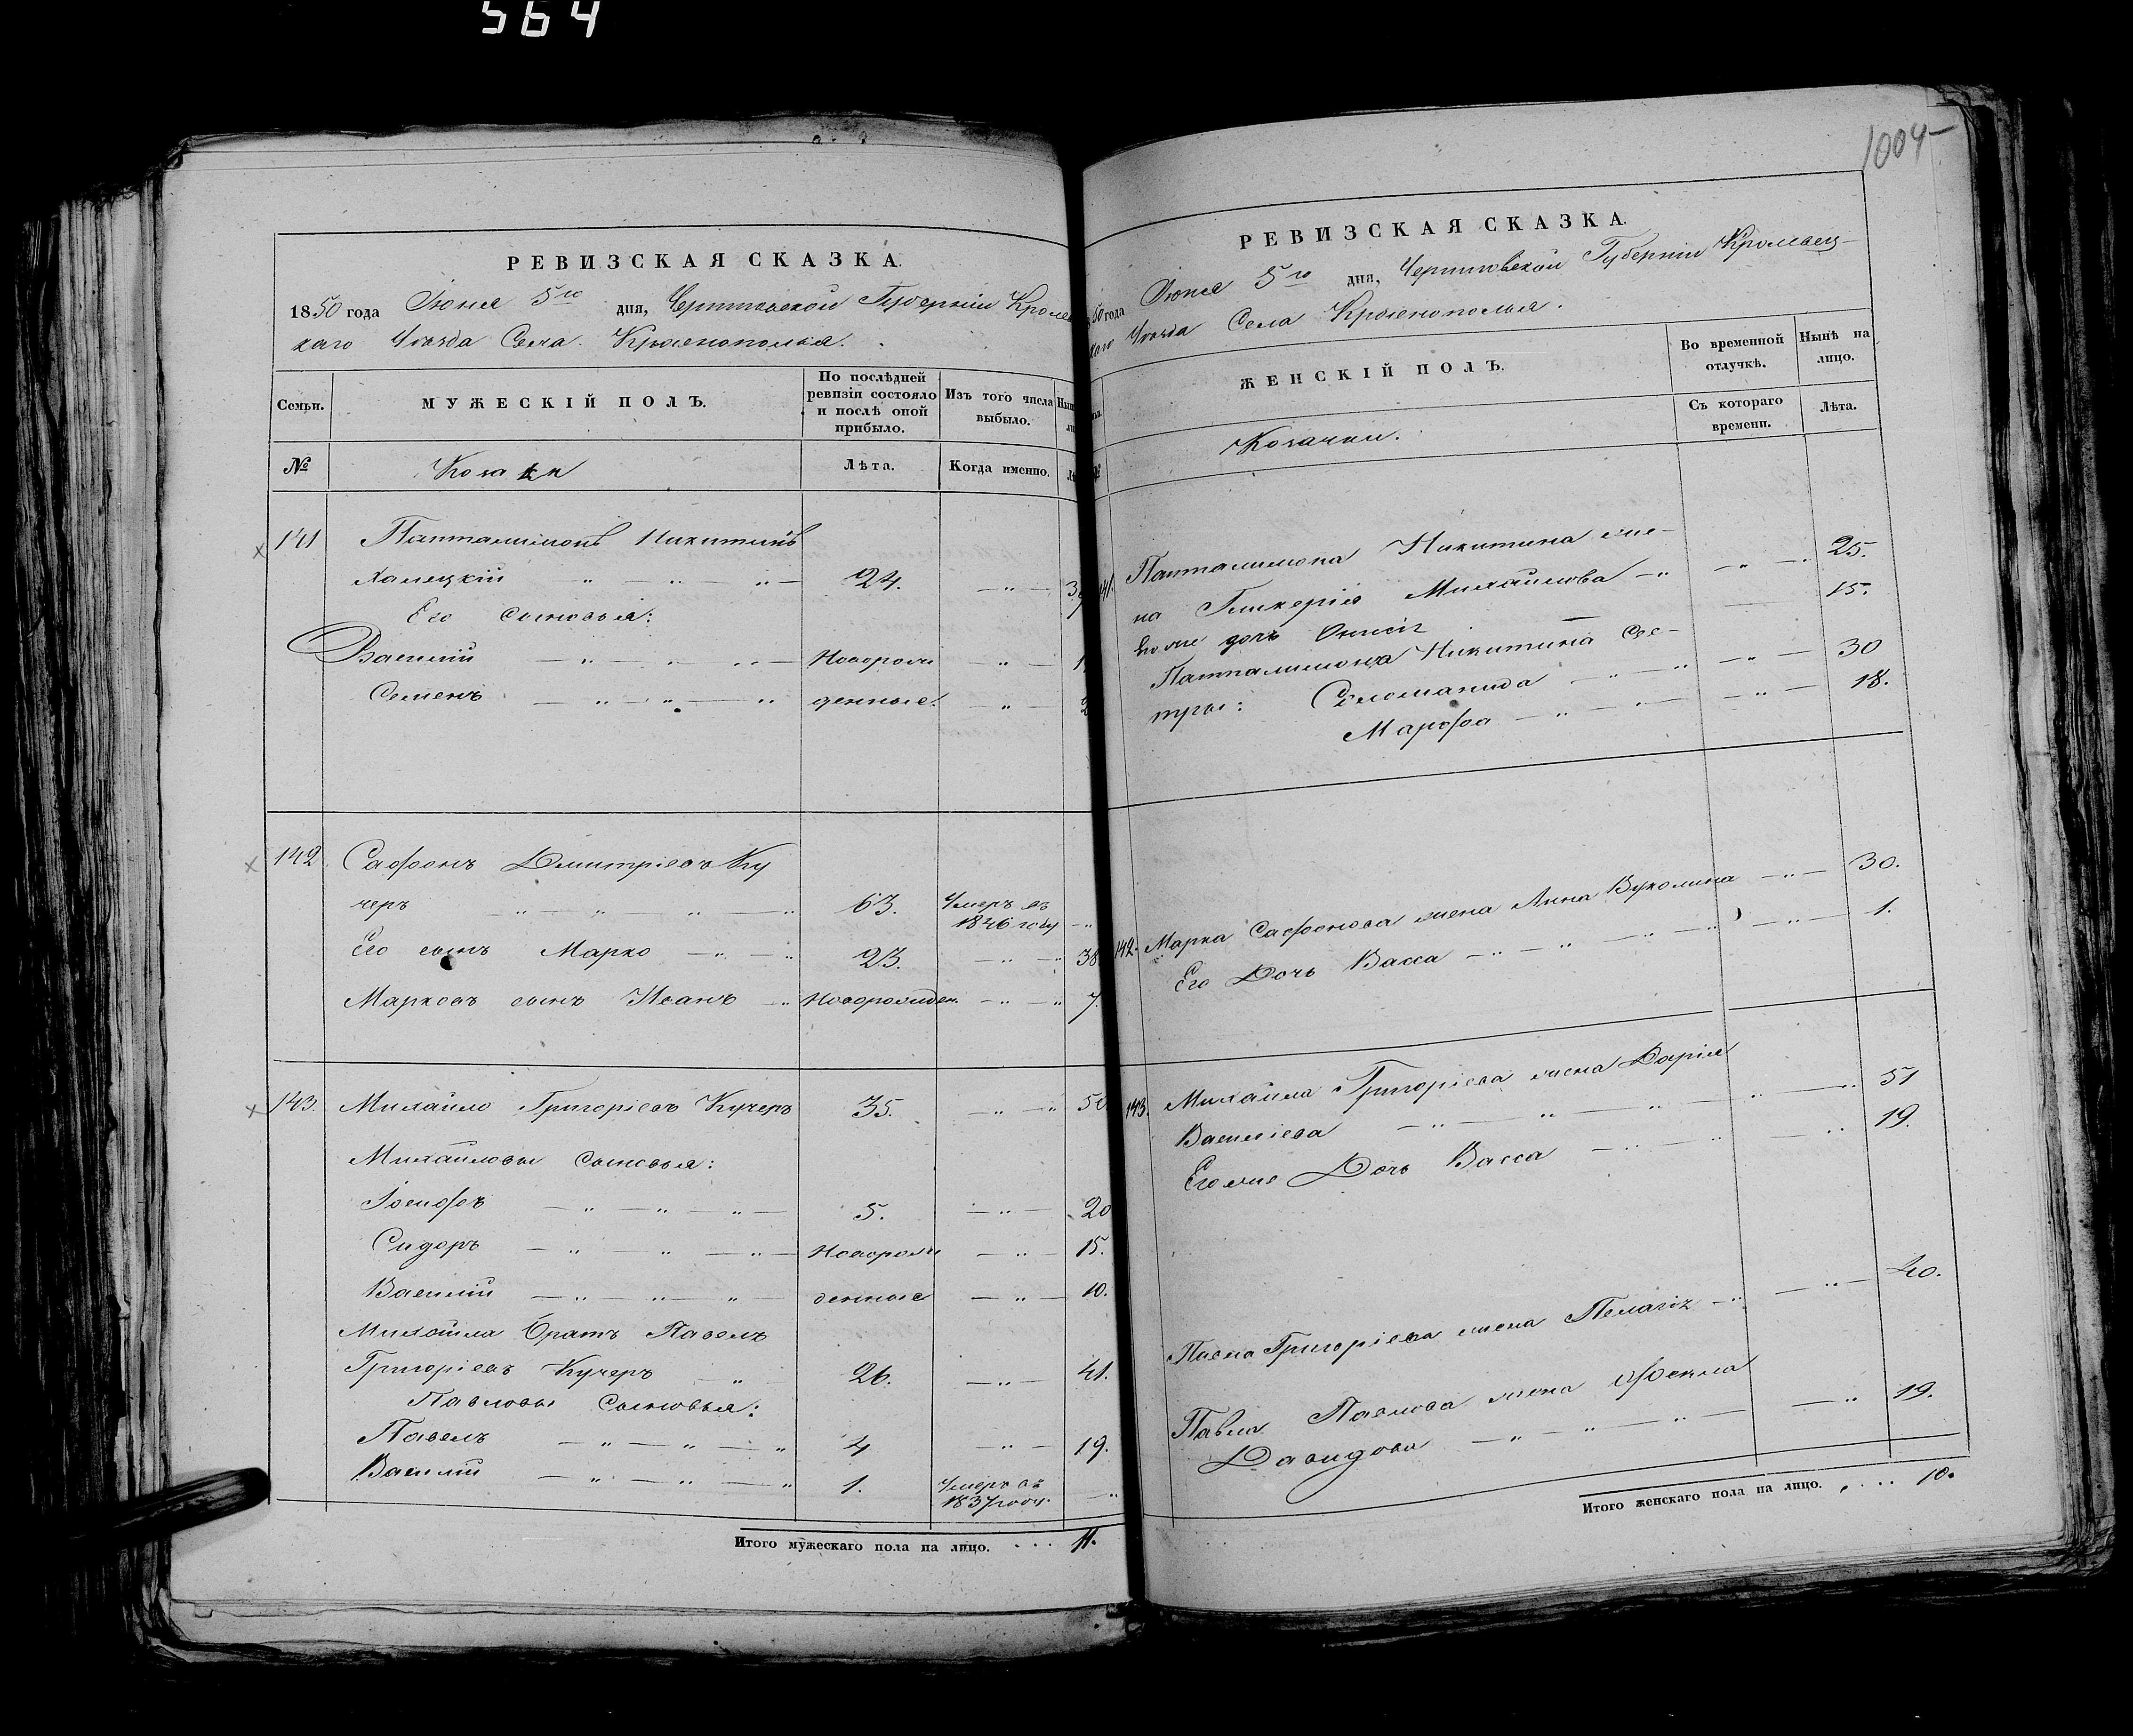 564
1004
РЕВИЗСКАЯ СКАЗКА.
1850 года Іюня 5го дня, Черниговской Губерніи Кролев
каго Уѣзда Села Краснополья.
Семьи.
МУЖЕСКІЙ ПОЛЪ.
По послѣдней ревизіи состояло и послѣ оной прибыло.
Изъ того числа выбыло.
№
Козаки
Лѣта.
Когда именно.
141 Панталимонъ Никитинъ
Халецкій 24.
Его сыновья:
Василій Новорож
Семенъ денные.
142 Сафонъ Дмитріевъ Ку
черъ 63. Умеръ въ 1846 году
Его сынъ Марко 23. 38
Марковъ сынъ Иванъ Новорожден. 7.
143. Михайло Григоріевъ Кучеръ 35. 50
Михайловы Сыновья:
Іосифъ 5. 20
Сидоръ Новорож 15.
Василій денные 10.
Михайла братъ Павелъ
Григоріевъ Кучеръ 26. 41.
Павловы Сыновья:
Павелъ 4 19.
Василій 1. Умеръ въ 1837 году.
Итого мужескаго пола на лицо. 11.
РЕВИЗСКАЯ СКАЗКА.
50 года Іюня 5го дня, Черниговской Губерніи Кролевец-
каго Уѣзда Села Краснополья.
ЖЕНСКІЙ ПОЛЪ.
Во временной отлучкѣ.
Нынѣ на лицо.
№
Козачки.
Съ котораго времени.
Лѣта.
141. Панталимона Никитина же-
на Гликерія Михайлова 25.
Его же дочь 15.
Панталимона Никитина Сес-
тры: Соломанида 30
Марфа 18.
142. Марка Сафонова жена Анна Вуколина 30.
Его Дочь Васса 1.
143. Михайла Григоріева жена Дарія
Василіева 51
Его же Дочь Васса 19.
Павла Григоріева жена Пелагія 40.
Павла Павлова жена Фекла
Давидова 19.
Итого женскаго пола на лицо. 10.